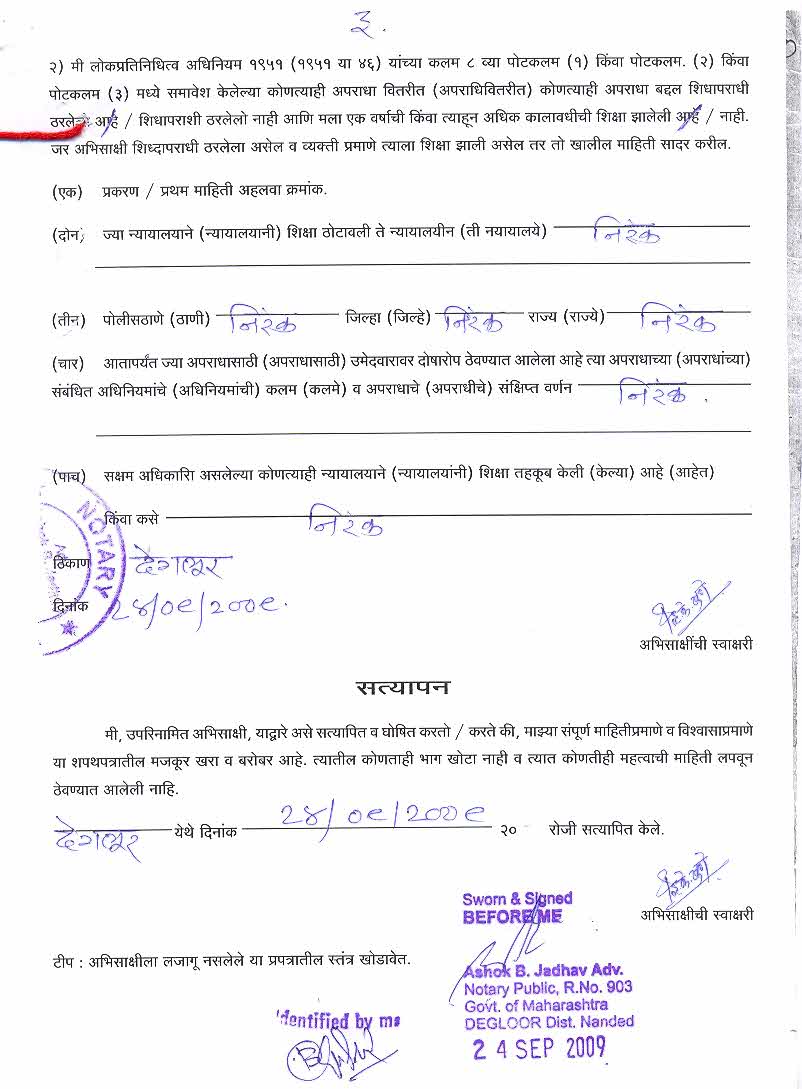 ३.
२) मी लोकप्रतिनिधित्व अधिनियम १९५१ (१९५१ या ४६) यांच्या कलम ८ व्या पोटकलम (१) किंवा पोटकलम. (२) किंवा
पोटकलम (३) मध्ये समावेश केलेल्या कोणत्याही अपराधा वितरीत (अपराधिवितरीत) कोणत्याही अपराधा बद्दल शिधापराधी
ठरलेलो आहे / शिधापराशी ठरलेलो नाही आणि मला एक वर्षाची किंवा त्याहून अधिक कालावधीची शिक्षा झालेली आहे / नाही.
जर अभिसाक्षी शिध्दापराधी ठरलेला असेल व व्यक्ती प्रमाणे त्याला शिक्षा झाली असेल तर तो खालील माहिती सादर करील.
(एक) प्रकरण / प्रथम माहिती अहलवा क्रमांक.
(दोन) ज्या न्यायालयाने (न्यायालयानी) शिक्षा ठोटावली ते न्यायालयीन (ती नयायालये) निरंक
(तीन) पोलीसठाणे (ठाणी) निरंक जिल्हा (जिल्हे) निरंक राज्य (राज्ये) निरंक
(चार) आतापर्यंत ज्या अपराधासाठी (अपराधासाठी) उमेदवारावर दोषारोप ठेवण्यात आलेला आहे त्या अपराधाच्या (अपराधांच्या)
संबंधित अधिनियमांचे (अधिनियमांची) कलम (कलमे) व अपराधाचे (अपराधीचे) संक्षिप्त वर्णन निरंक .
(पाच) सक्षम अधिकारिा असलेल्या कोणत्याही न्यायालयाने (न्यायालयांनी) शिक्षा तहकूब केली (केल्या) आहे (आहेत)
किंवा कसे निरंक
NOTARY
ठिकाण देगलूर
दिनांक २४/०९/२००९.
अभिसाक्षींची स्वाक्षरी
सत्यापन
मी, उपरिनामित अभिसाक्षी, याद्वारे असे सत्यापित व घोषित करतो / करते की, माझ्या संपूर्ण माहितीप्रमाणे व विश्वासाप्रमाणे
या शपथपत्रातील मजकूर खरा व बरोबर आहे. त्यातील कोणताही भाग खोटा नाही व त्यात कोणतीही महत्वाची माहिती लपवून
ठेवण्यात आलेली नाहि.
देगलूर येथे दिनांक २४/०९/२००९ २० रोजी सत्यापित केले.
Sworn & Signed
BEFORE ME
अभिसाक्षीची स्वाक्षरी
टीप : अभिसाक्षीला लजागू नसलेले या प्रपत्रातील स्तंत्र खोडावेत.
Ashok B. Jadhav Adv.
Notary Public, R.No. 903
Govt. of Maharashtra
DEGLOOR Dist. Nanded
24 SEP 2009
Identified by me